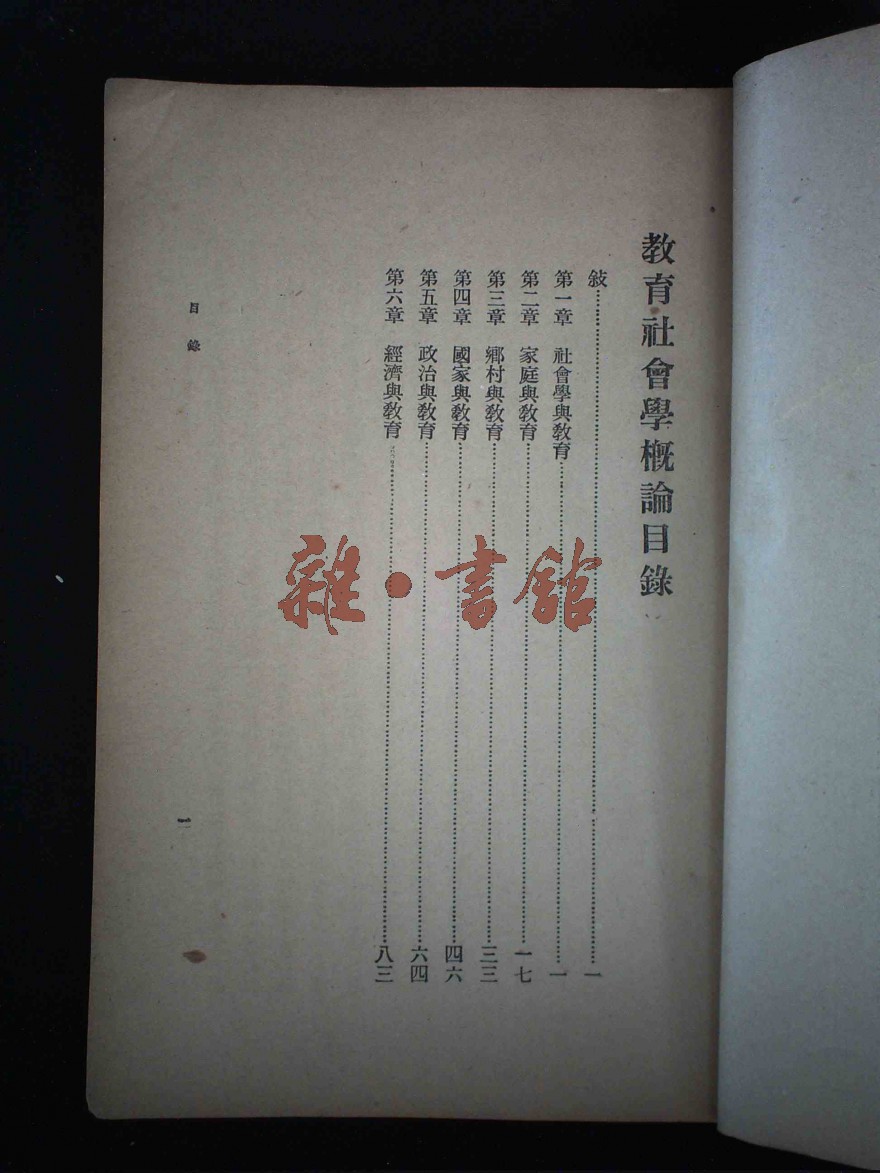 教育社會學概論目錄
敍……一
第一章　社會學與教育……一
第二章　家庭與教育……一七
第三章　鄉村與教育……三三
第四章　國家與教育……四六
第五章　政治與教育……六四
第六章　經濟與教育……八三
目錄
一
雜·書館